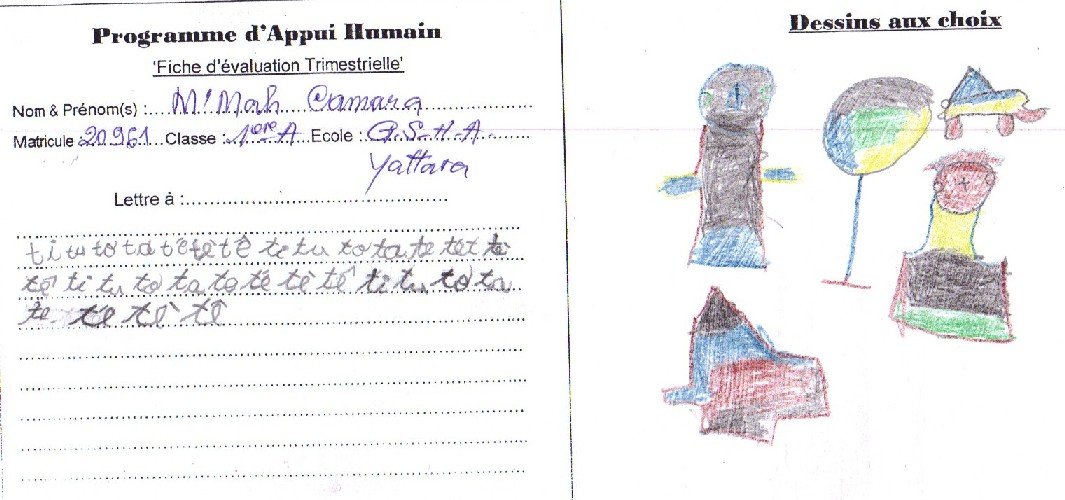 Programme d'Appui Humain
'Fiche d'évaluation Trimestrielle'
Nom & Prénom(s) : M'Mah Camara
Matricule : 20961 Classe : 1ère A Ecole : G.S.H.A.
Yattara
Lettre à :
ti tu to ta té tè tê te tu to ta te tet tè
té ti tu to ta te tê tè té ti tu to ta
te te tè tê
Dessins aux choix